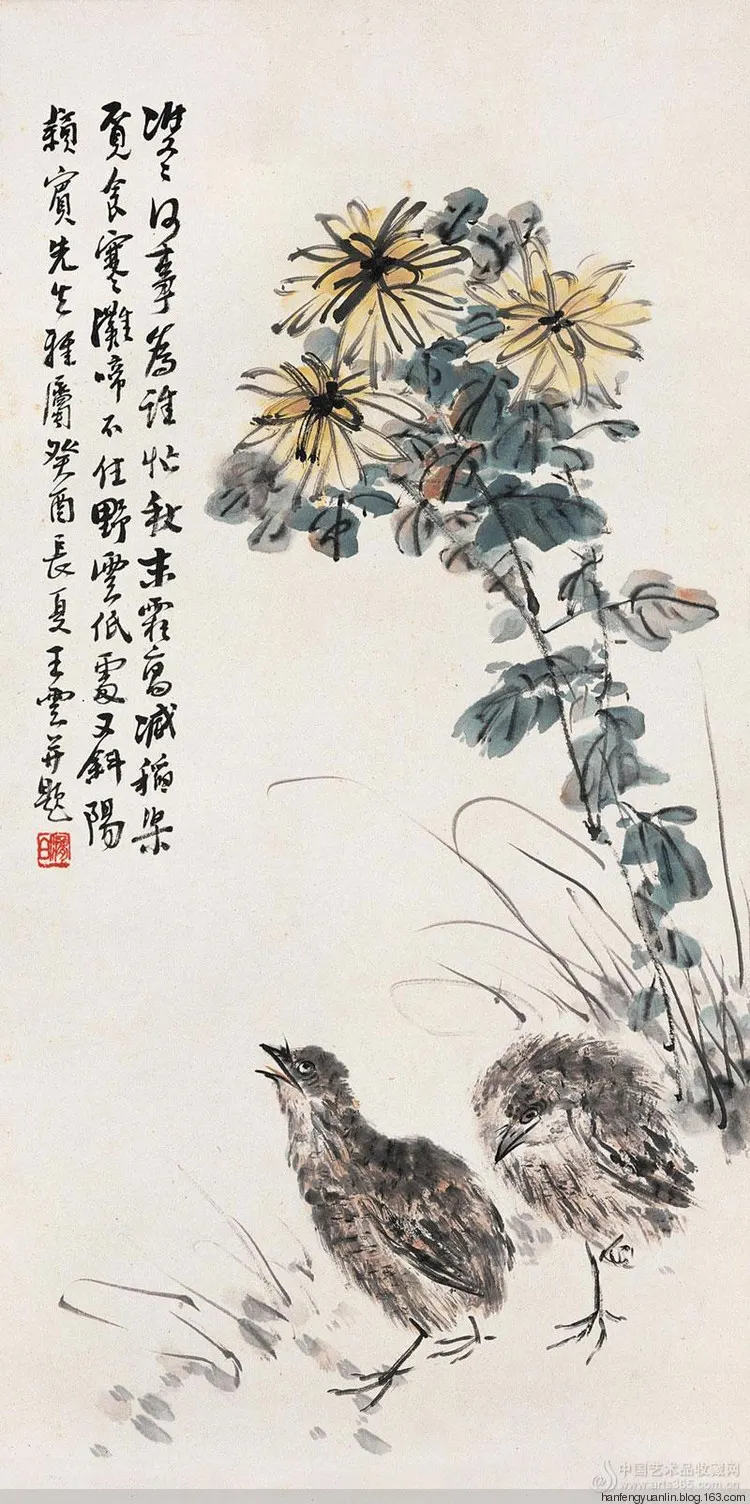 双〻何事为谁忙秋末霜高减稻粱
覓食寒〻灘啼不住野雲低處又斜陽
賓先生雅屬癸酉長夏王雲并題
中国艺术品收藏网
www.arts365.com.cn
hanfengyuanlin.blog.163.com